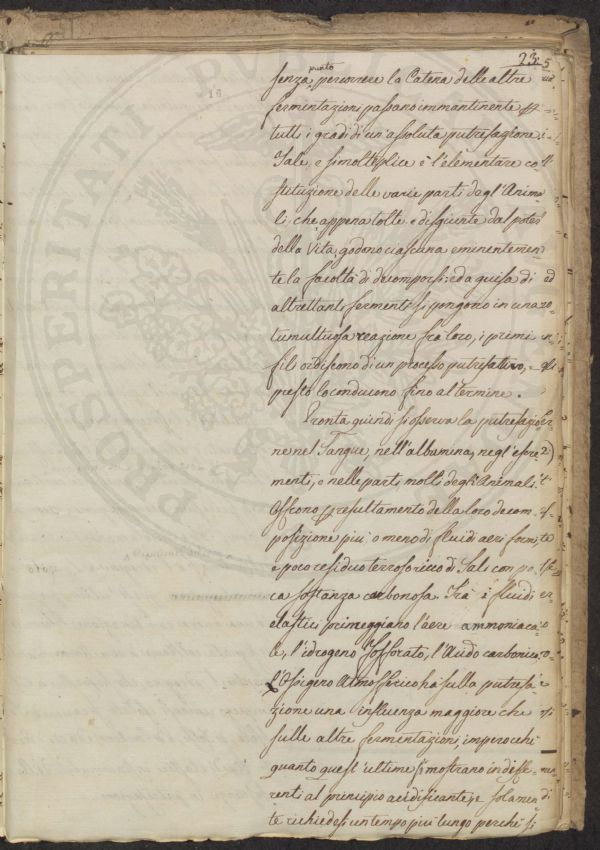 23
senza punto percorrere la Catena delle altre
fermentazioni passano immantinente
tutti i gradi di un'assoluta putrefazione
Tale, e si molteplice è l'elementare co
stituzione delle varie parti degl'Anima
li che appena tolte e disgiunte dal poter
della Vita, godono ciascuna eminentemen
te la facoltà di decomporsi: ed a guisa di
altrettanti fermenti si pongono in una
tumultuosa reazione fra loro, i primi
fili ordiscono di un processo putrefattivo,
presto lo conducono fino al termine.
Pronta quindi si osserva la putrefazio
ne nel Sangue, nell'albumina, negl'escre
menti, e nelle parti molli degl'Animali.
Offrono resultamento della loro decom-
posizione più, o meno di fluidi aeri formi,
e poco residuo terroso ricco di Sali con po
ca sostanza carbonosa. Frà i fluidi
elastici primeggiano l'aere ammoniaca
le, l'idrogeno fosforato, l'Acido carbonico,
l'Ossigeno Atmosferico ha sulla putrefa
zione una influenza maggiore che
sulle altre fermentazioni, imperochè
quanto quest'ultime si mostrano indiffe-
renti al principio acidificante, e solamen
te richiedesi un tempo più lungo perchè si
PROSPERITATI PUBLI